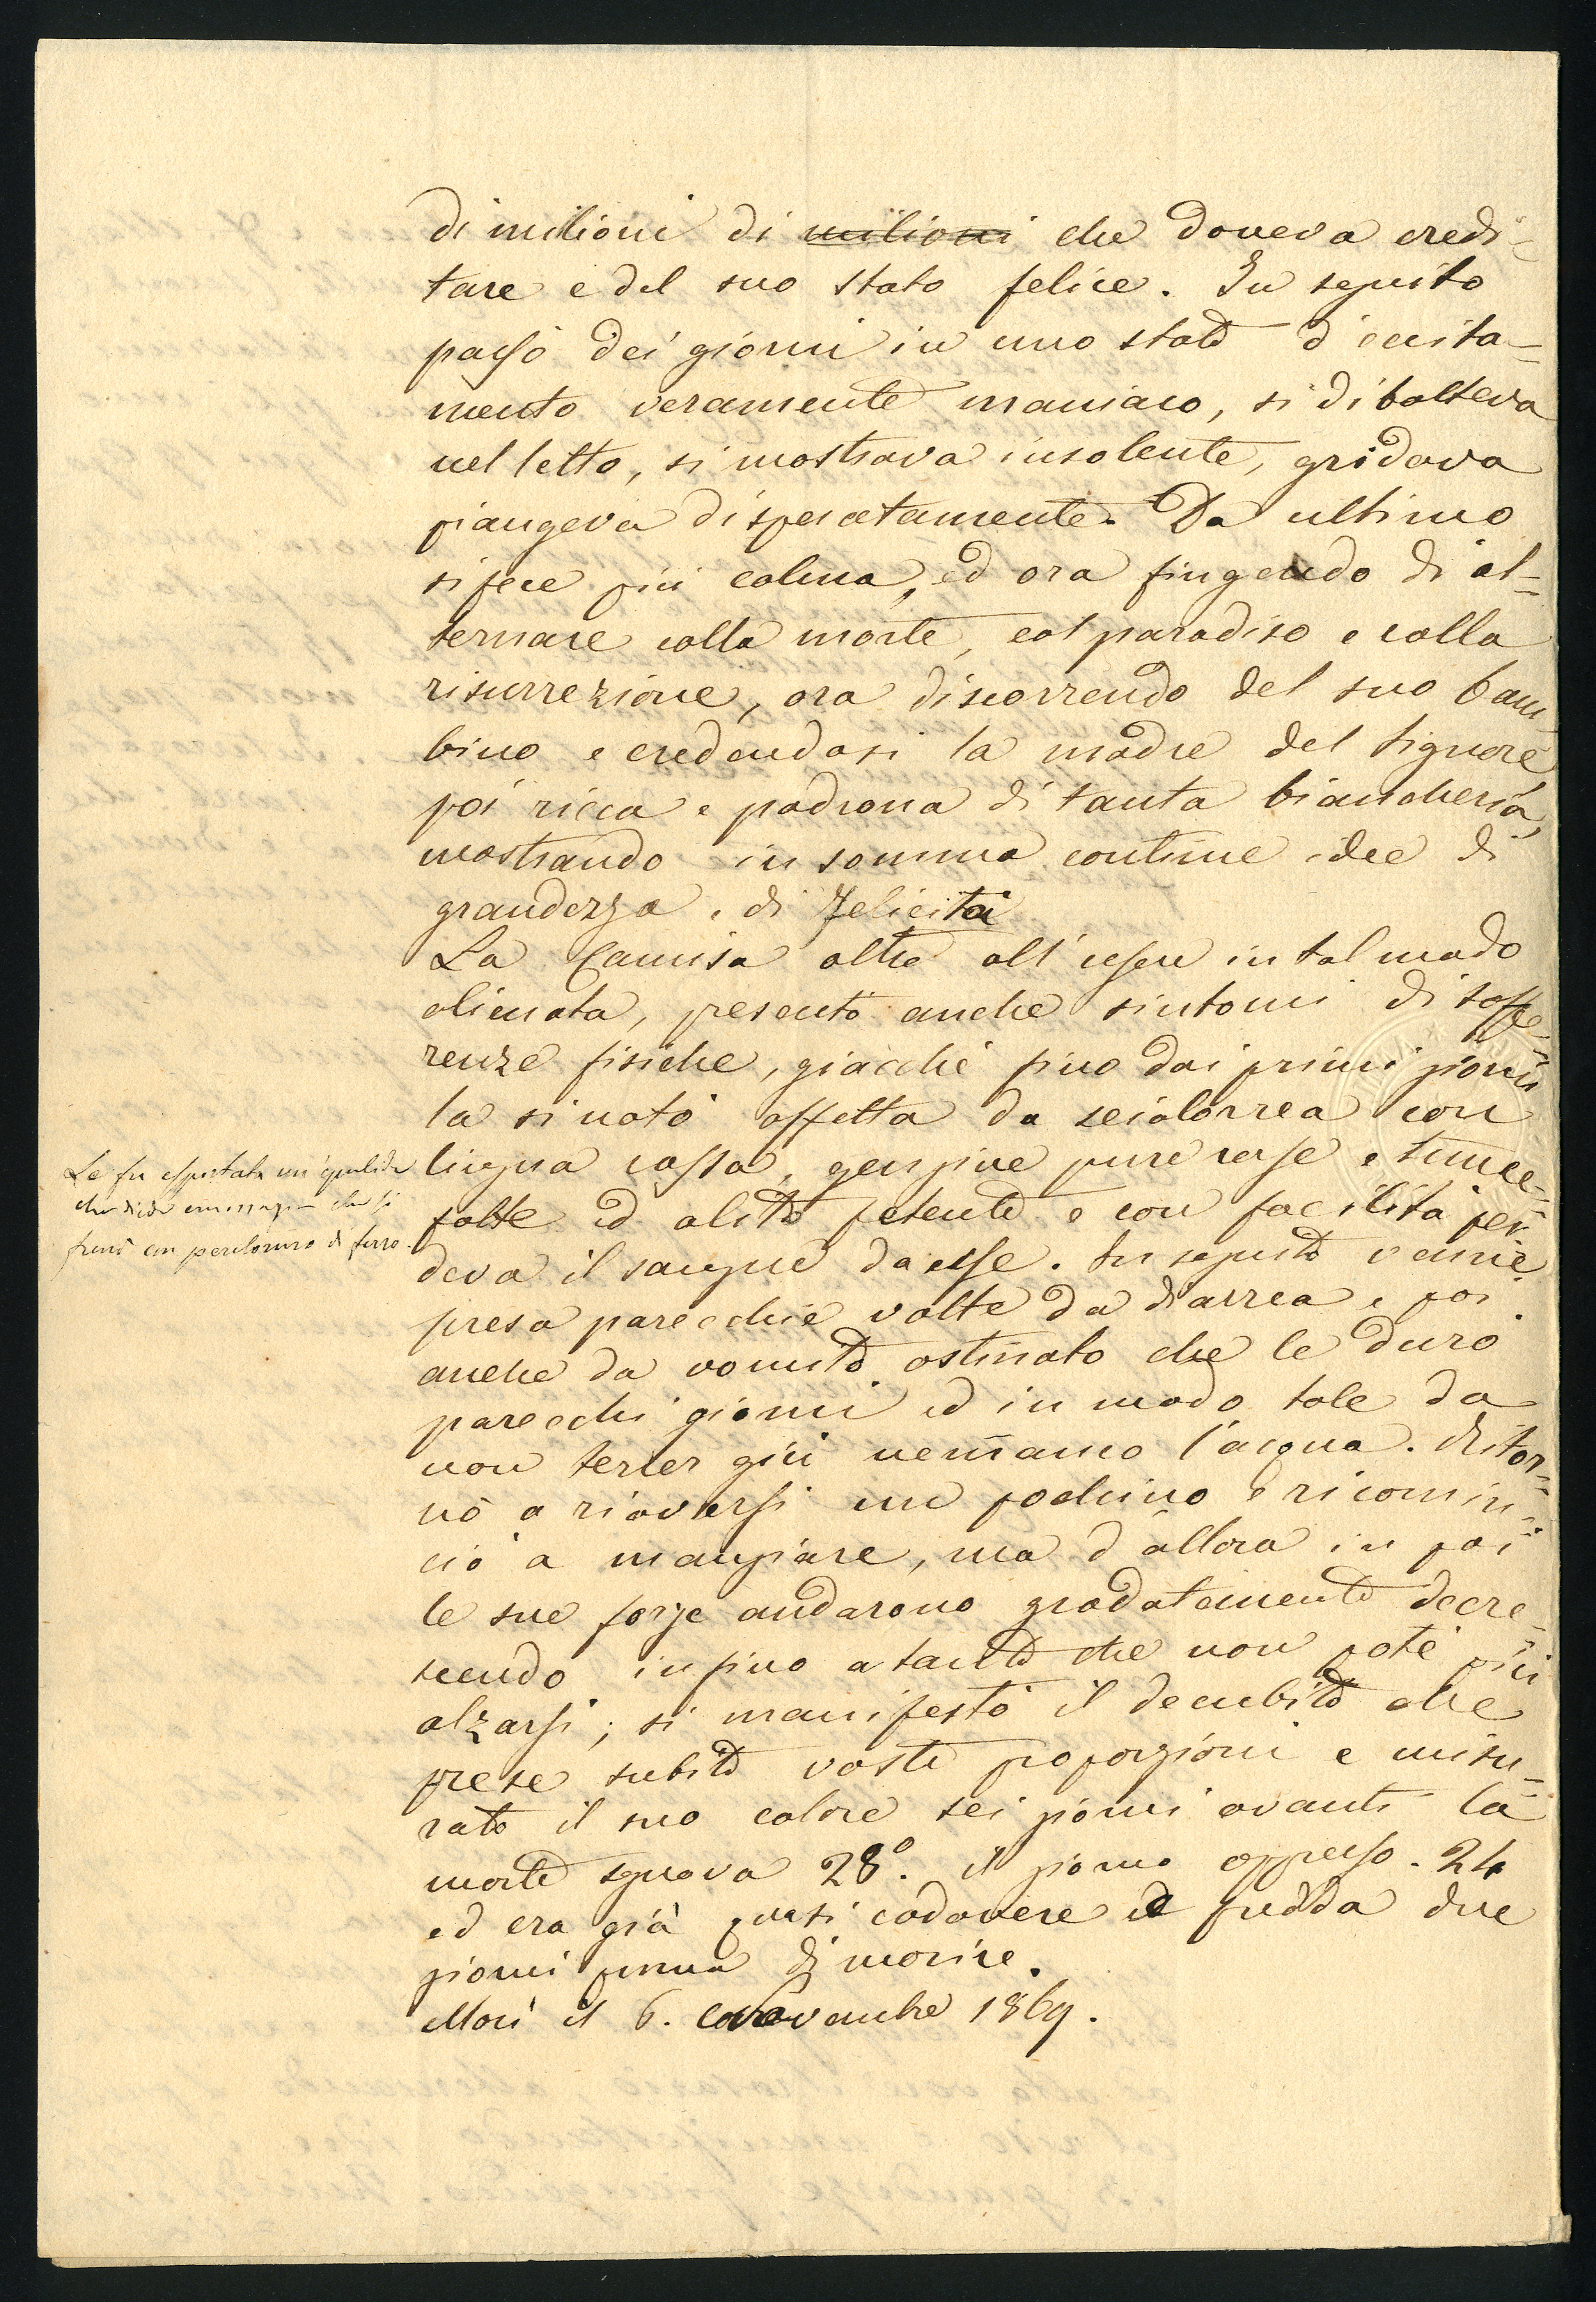 di milioni di milioni che doveva eredi=
tare e del suo stato felice. In seguito
passò dei giorni in uno stato d'eccita=
mento veramente maniaco, si dibatteva
nel letto, si mostrava insolente, gridava
piangeva disperatamente. Da ultimo
si fece più calma, ed ora fingendo di al=
ternare colla morte, col paradiso e colla
risurrezione, ora discorrendo del suo bam
bino e credendosi la madre del Signore,
poi ricca e padrona di tanta biancheria,
mostrando in somma continue idee di
grandezza e di felicità
La Camisa oltre all'essere in tal modo
alienata, presentò anche sintomi di soffe=
renze fisiche, giacchè fino dai primi giorni
la si notò affetta da scialorrea con
lingua rossa, gengive pure rosse e tume=
Le fu esportata un'epulide
che diede emorragia che si
frenò con percloruro di ferro.
fatte ed alito fetente e con facilità per
deva il sangue da esse. In seguito venne
presa parecchie volte da diarrea e poi
anche da vomito ostinato che le durò
parecchi giorni ed in modo tale da
non tener giù nemmeno l'acqua. Ritor=
nò a riaversi un pochino e ricomin=
ciò a mangiare, ma d'allora in poi
le sue forze andarono gradatamente decre=
scendo infino a tanto che non potè più
alzarsi; si manifestò il decubito che
prese subito vaste proporzioni e misu=
rato il suo calore sei giorni avanti la
morte segnava 28°. il giorno appresso. 24
ed era già quasi cadavere e fredda due
giorni prima di morire.
Morì il 6. Novembre 1869.